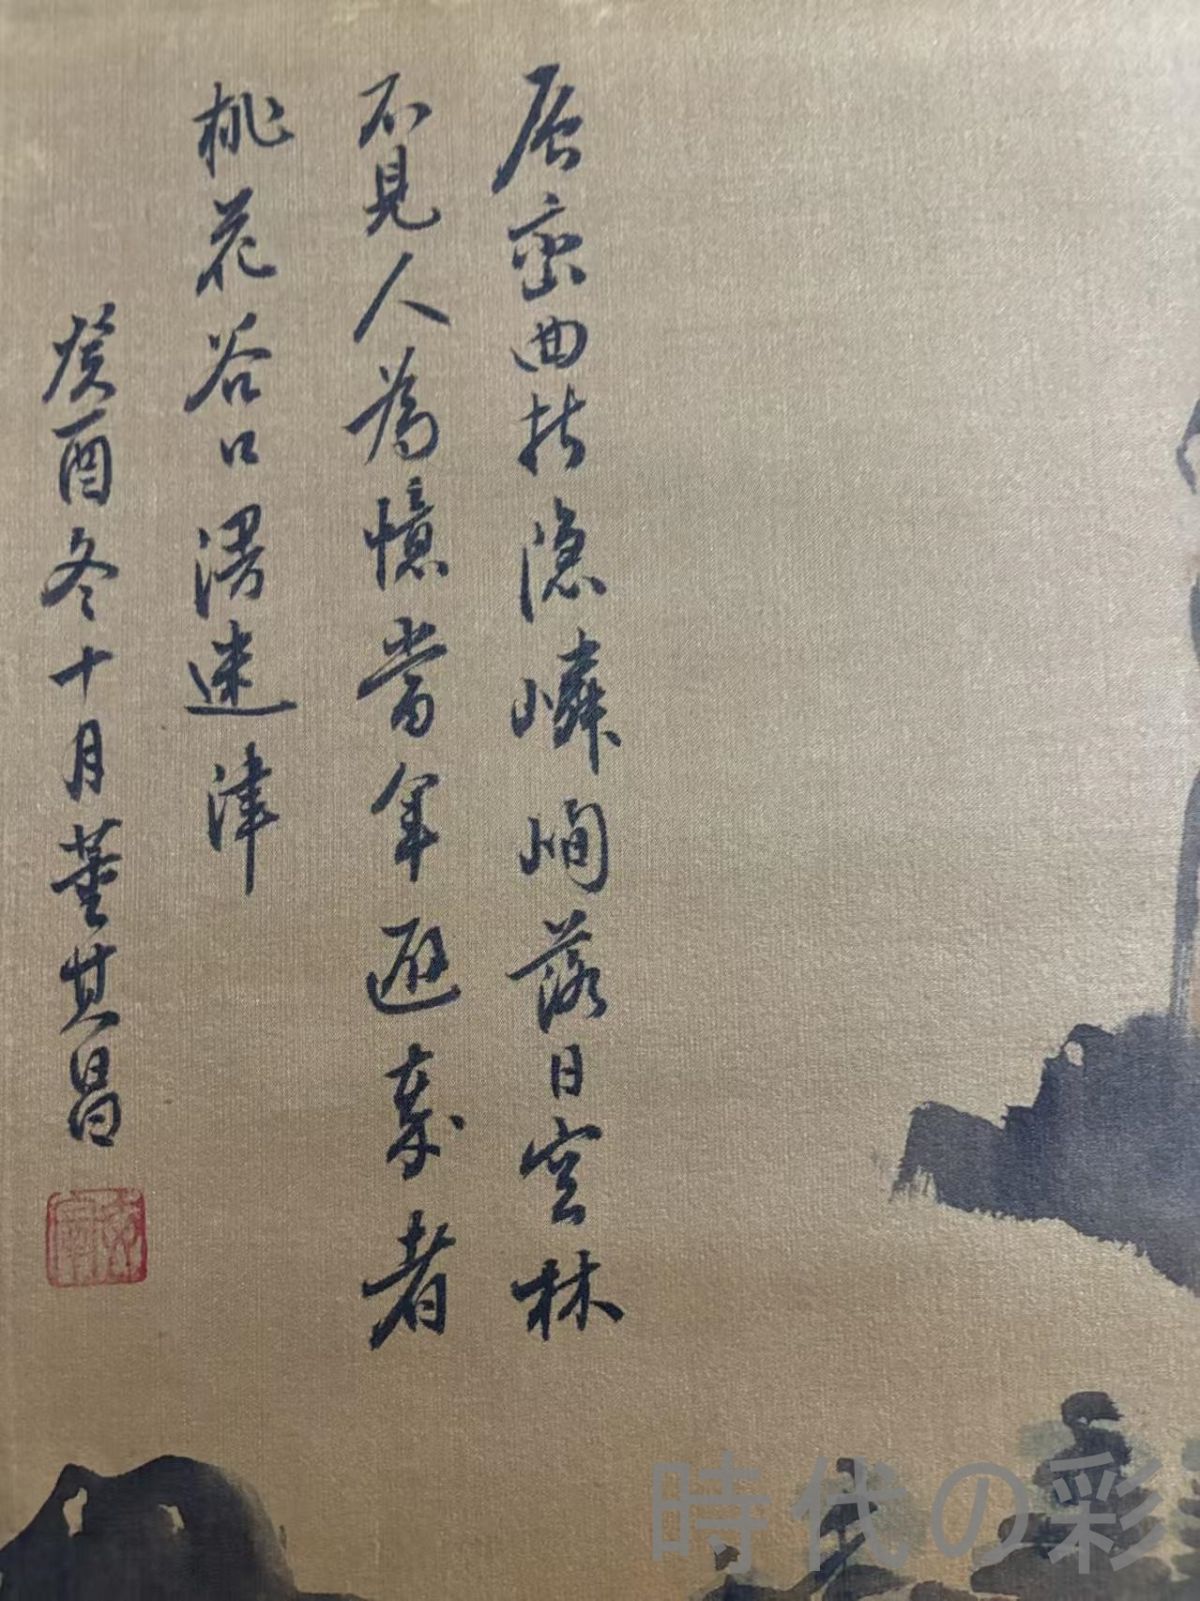 层峦曲折隐嶙峋落日空林
不見人為憶當年避秦者
桃花谷口漫迷津
癸酉冬十月董其昌
時代の彩